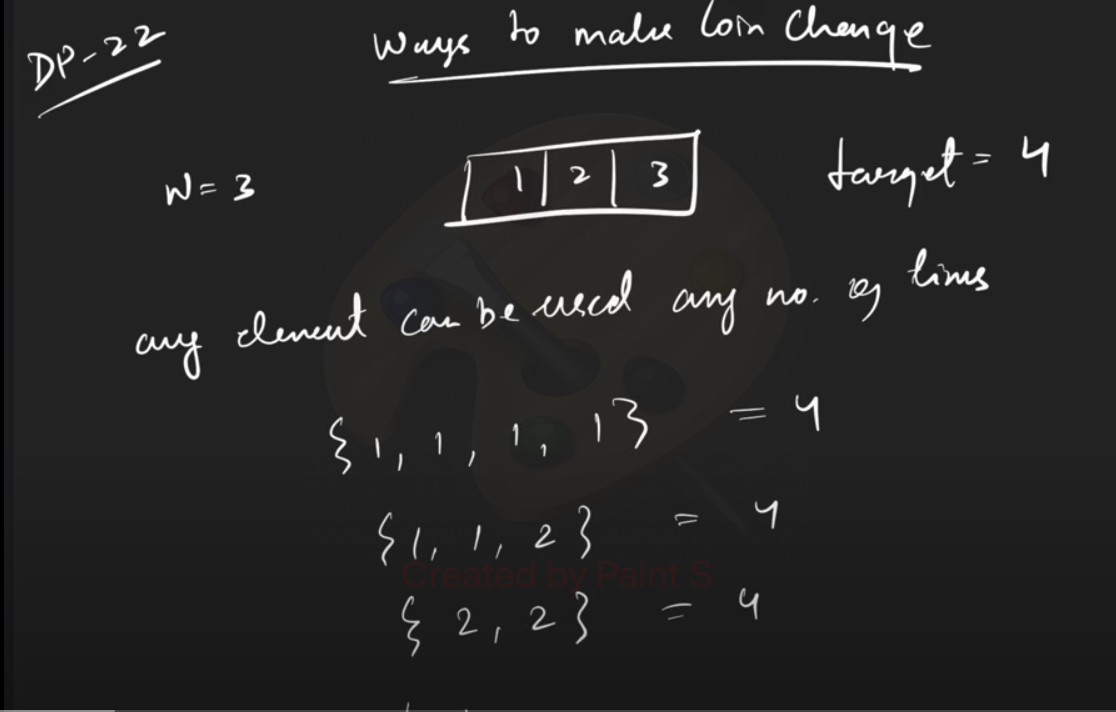 DP-22
Ways to make Coin Change
N = 3
1 | 2 | 3
target = 4
any element can be used any no. of times
{1, 1, 1, 1} = 4
{1, 1, 2} = 4
Created by Paint S
{2, 2} = 4